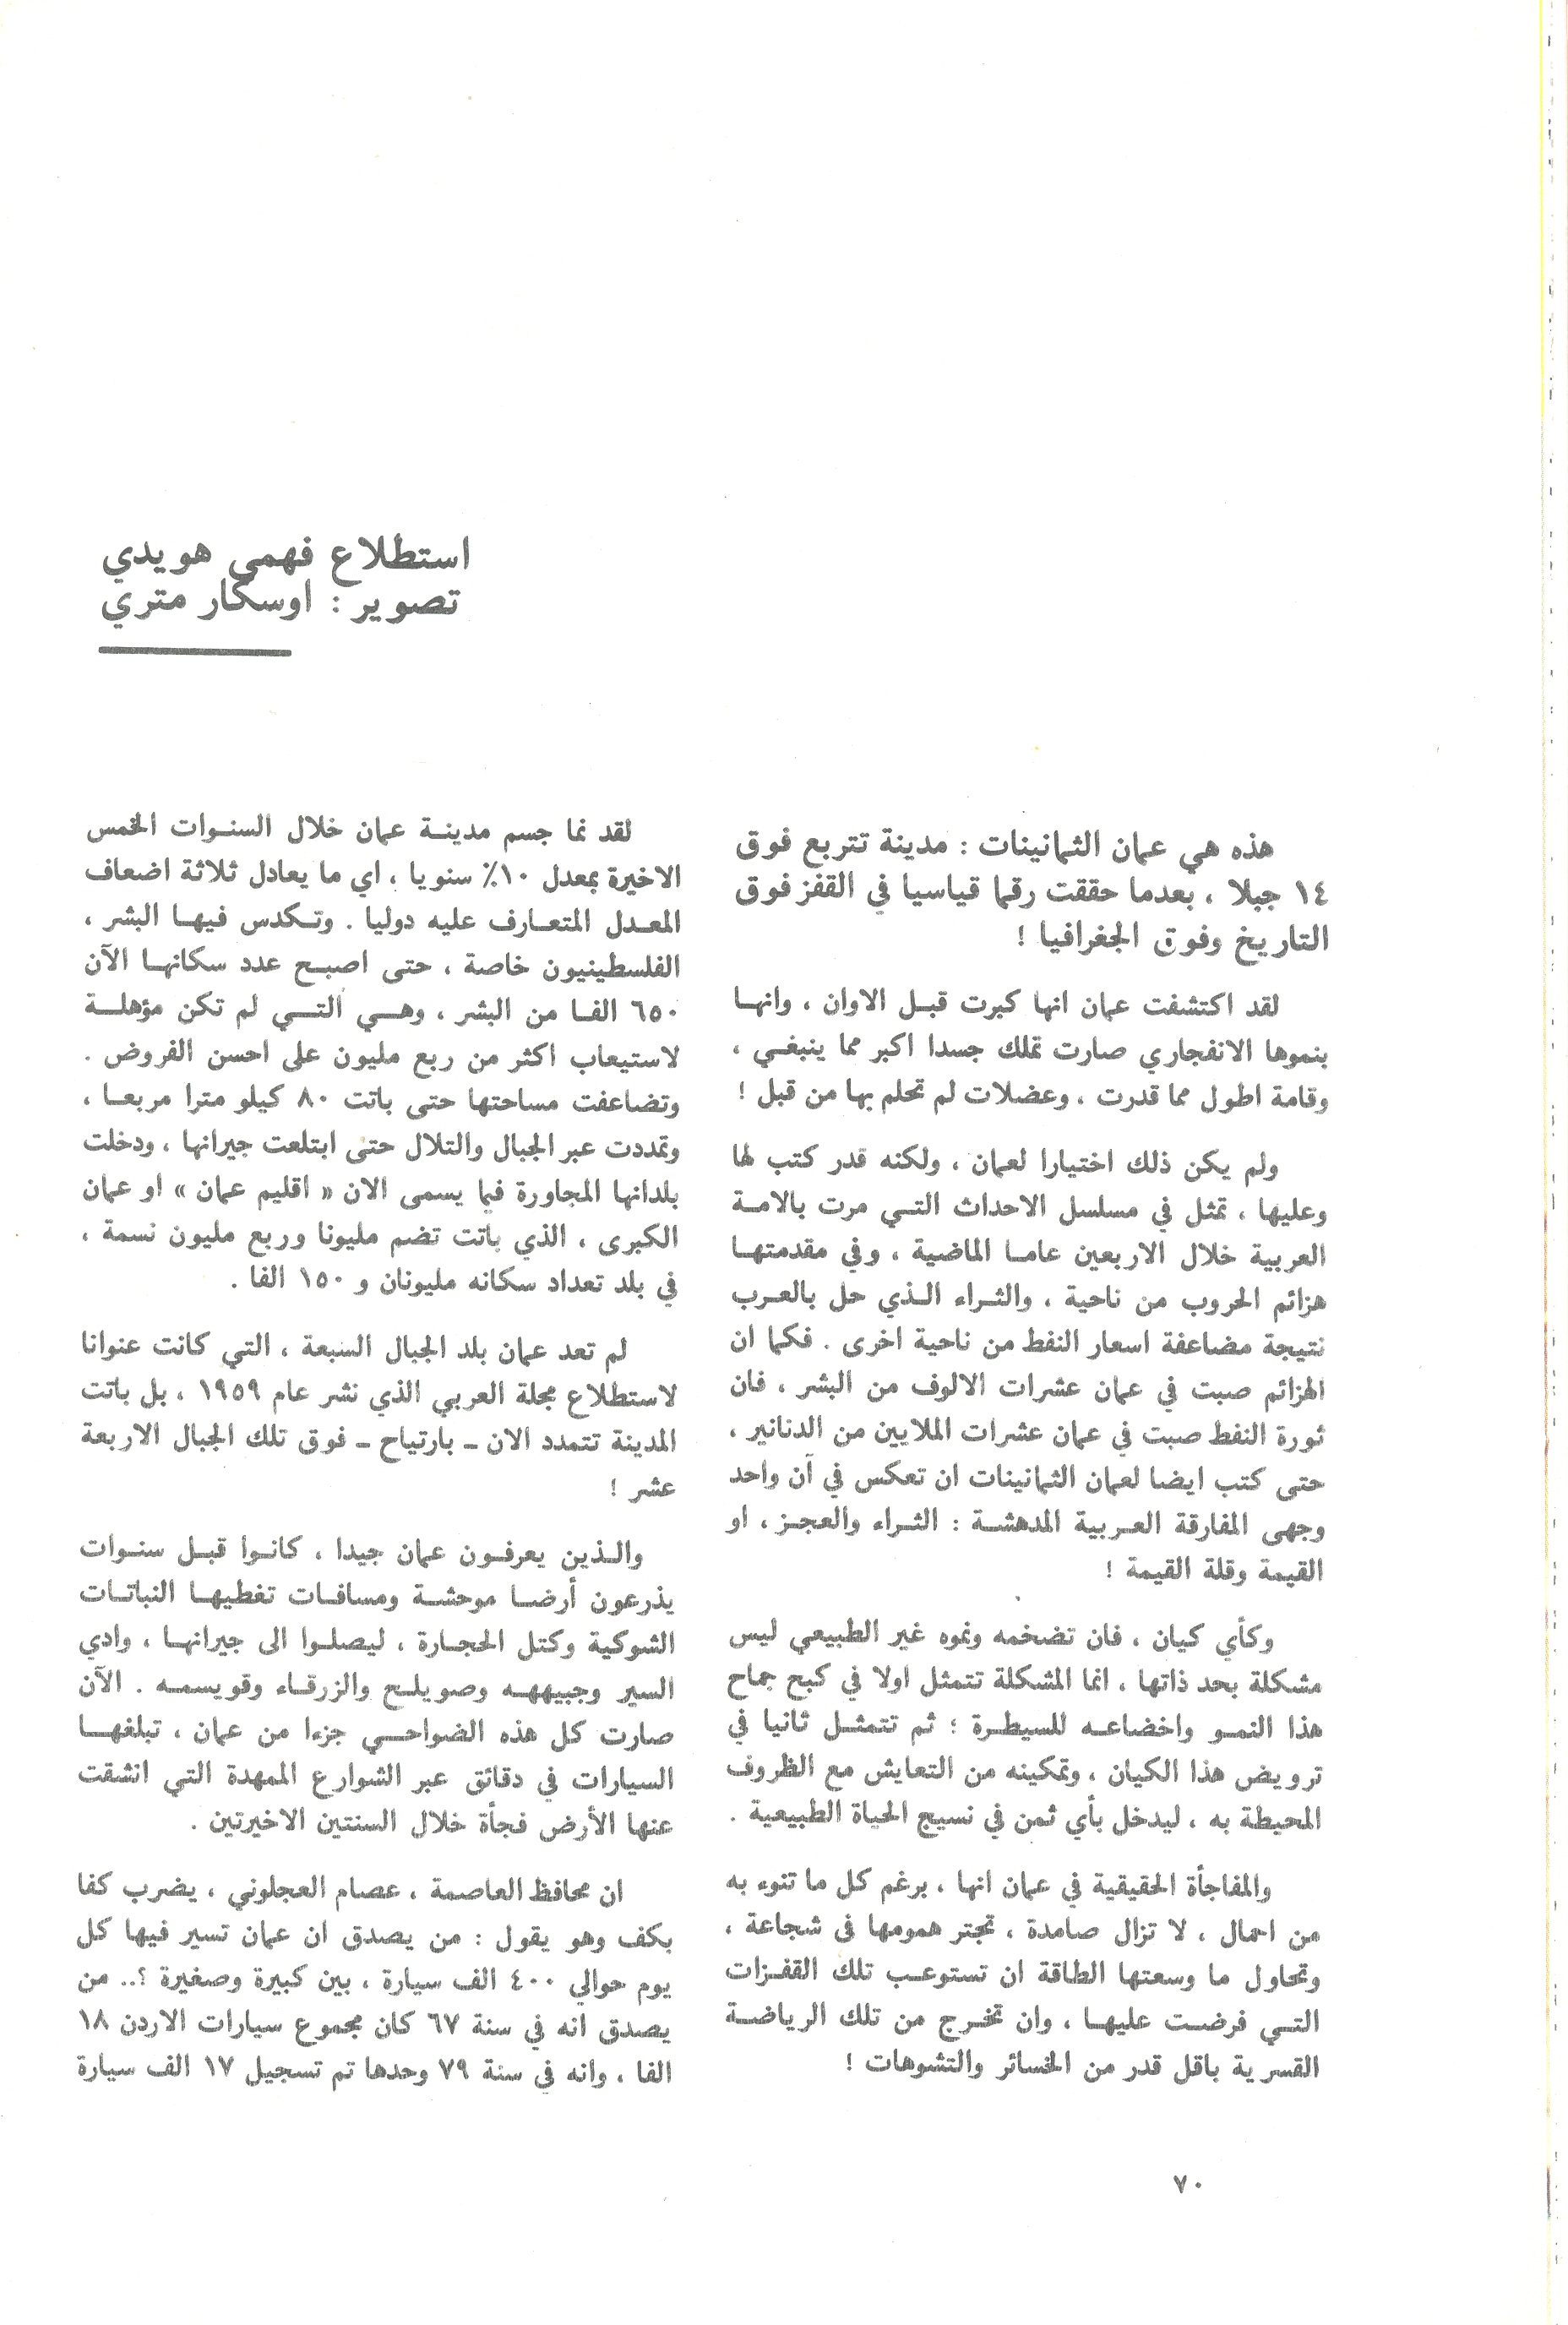 استطلاع فهمي هويدي
تصوير : اوسكار متري
هذه هي عمان الثمانينات : مدينة تتربع فوق
١٤ جبلا ، بعدما حققت رقما قياسيا في القفز فوق
التاريخ وفوق الجغرافيا !
لقد اكتشفت عمان انها كبرت قبل الاوان ، وانها
بنموها الانفجاري صارت تملك جسدا اكبر مما ينبغي ،
وقامة اطول مما قدرت ، وعضلات لم تحلم بها من قبل !
ولم يكن ذلك اختيارا لعمان ، ولكنه قدر كتب لها
وعليها ، تمثل في مسلسل الاحداث التي مرت بالامة
العربية خلال الاربعين عاما الماضية ، وفي مقدمتها
هزائم الحروب من ناحية ، والثراء الذي حل بالعرب
نتيجة مضاعفة اسعار النفط من ناحية اخرى . فكما ان
الهزائم صبت في عمان عشرات الالوف من البشر ، فان
ثورة النفط صبت في عمان عشرات الملايين من الدنانير ،
حتى كتب ايضا لعمان الثمانينات ان تعكس في آن واحد
وجهى المفارقة العربية المدهشة : الثراء والعجز ، او
القيمة وقلة القيمة !
وكأي كيان ، فان تضخمه ونموه غير الطبيعي ليس
مشكلة بحد ذاتها ، انما المشكلة تتمثل اولا في كبح جماح
هذا النمو واخضاعه للسيطرة ؛ ثم تتمثل ثانيا في
ترويض هذا الكيان ، وتمكينه من التعايش مع الظروف
المحيطة به ، ليدخل بأي ثمن في نسيج الحياة الطبيعية .
والمفاجأة الحقيقية في عمان انها ، برغم كل ما تنوء به
من احمال ، لا تزال صامدة ، تجتر همومها فى شجاعة ،
وتحاول ما وسعتها الطاقة ان تستوعب تلك القفزات
التي فرضت عليها ، وان تخرج من تلك الرياضة
القسرية باقل قدر من الخسائر والتشوهات !
لقد نما جسم مدينة عمان خلال السنوات الخمس
الاخيرة بمعدل ١٠٪ سنويا ، اي ما يعادل ثلاثة اضعاف
المعدل المتعارف عليه دوليا . وتكدس فيها البشر ،
الفلسطينيون خاصة ، حتى اصبح عدد سكانها الآن
٦٥٠ الفا من البشر ، وهي التي لم تكن مؤهلة
لاستيعاب اكثر من ربع مليون على احسن الفروض .
وتضاعفت مساحتها حتى باتت ٨٠ كيلو مترا مربعا ،
وتمددت عبر الجبال والتلال حتى ابتلعت جيرانها ، ودخلت
بلدانها المجاورة فيما يسمى الان « اقليم عمان » او عمان
الكبرى ، الذي باتت تضم مليونا وربع مليون نسمة ،
في بلد تعداد سكانه مليونان و ١٥٠ الفا .
لم تعد عمان بلد الجبال السبعة ، التي كانت عنوانا
لاستطلاع مجلة العربي الذي نشر عام ١٩٥٩ ، بل باتت
المدينة تتمدد الان ـ بارتياح ـ فوق تلك الجبال الاربعة
عشر !
والذين يعرفون عمان جيدا ، كانوا قبل سنوات
يذرعون أرضا موحشة ومسافات تغطيها النباتات
الشوكية وكتل الحجارة ، ليصلوا الى جيرانها ، وادي
السير وجبيهه وصويلح والزرقاء وقويسمه . الآن
صارت كل هذه الضواحي جزءا من عمان ، تبلغها
السيارات في دقائق عبر الشوارع الممهدة التي انشقت
عنها الأرض فجأة خلال السنتين الاخيرتين .
ان محافظ العاصمة ، عصام العجلوني ، يضرب كفا
بكف وهو يقول : من يصدق ان عمان تسير فيها كل
يوم حوالي ٤٠٠ الف سيارة ، بين كبيرة وصغيرة ؟.. من
يصدق انه في سنة ٦٧ كان مجموع سيارات الاردن ١٨
الفا ، وانه في سنة ٧٩ وحدها تم تسجيل ١٧ الف سيارة
٧٠